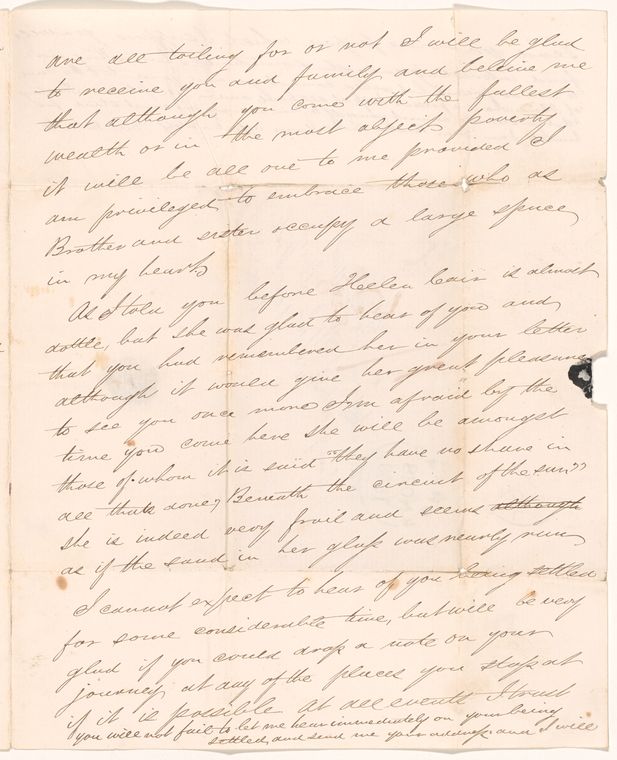 are all toiling for or not I will be glad
to receive you and family and believe me
that although you come with the fullest
wealth or in the most abject poverty
it will be all one to me provided I
am privileged to embrace those who as
Brother and sister occupy a large space
in my heart
As I told you before Heelen Cair is almost
dottle, but she was glad to hear of you and
that you had remembered her in your letter
although it would give her great pleasure
to see you once more I'm afraid by the
time you come here she will be amongst
those of whom it is said "they have no share in
all thats done, Beneath the circuit of the sun"
she is indeed very frail and seems although
as if the sand in her glass was nearly run
I cannot expect to hear of you being settled
for some considerable time, but will be very
glad if you could drop a note on your
journey at any of the places you stop at
if it is possible At all events I trust
you will not fail to let me hear immediately on your being
settled, and send me your address and I will